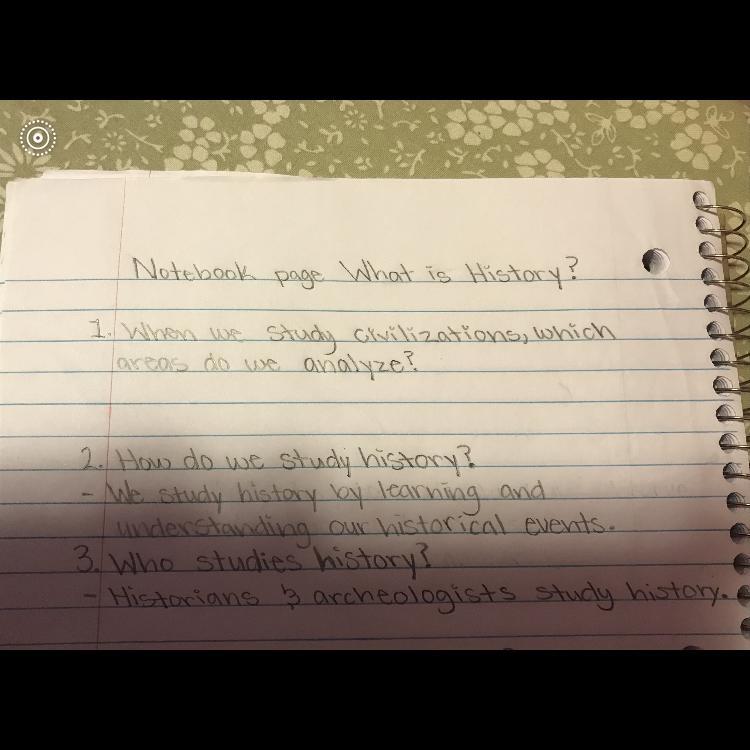 Notebook page What is History?
1. When we study civilizations, which
areas do we analyze?
2. How do we study history?
- We study history by learning and
understanding our historical events.
3. Who studies history?
- Historians & archeologists study history.